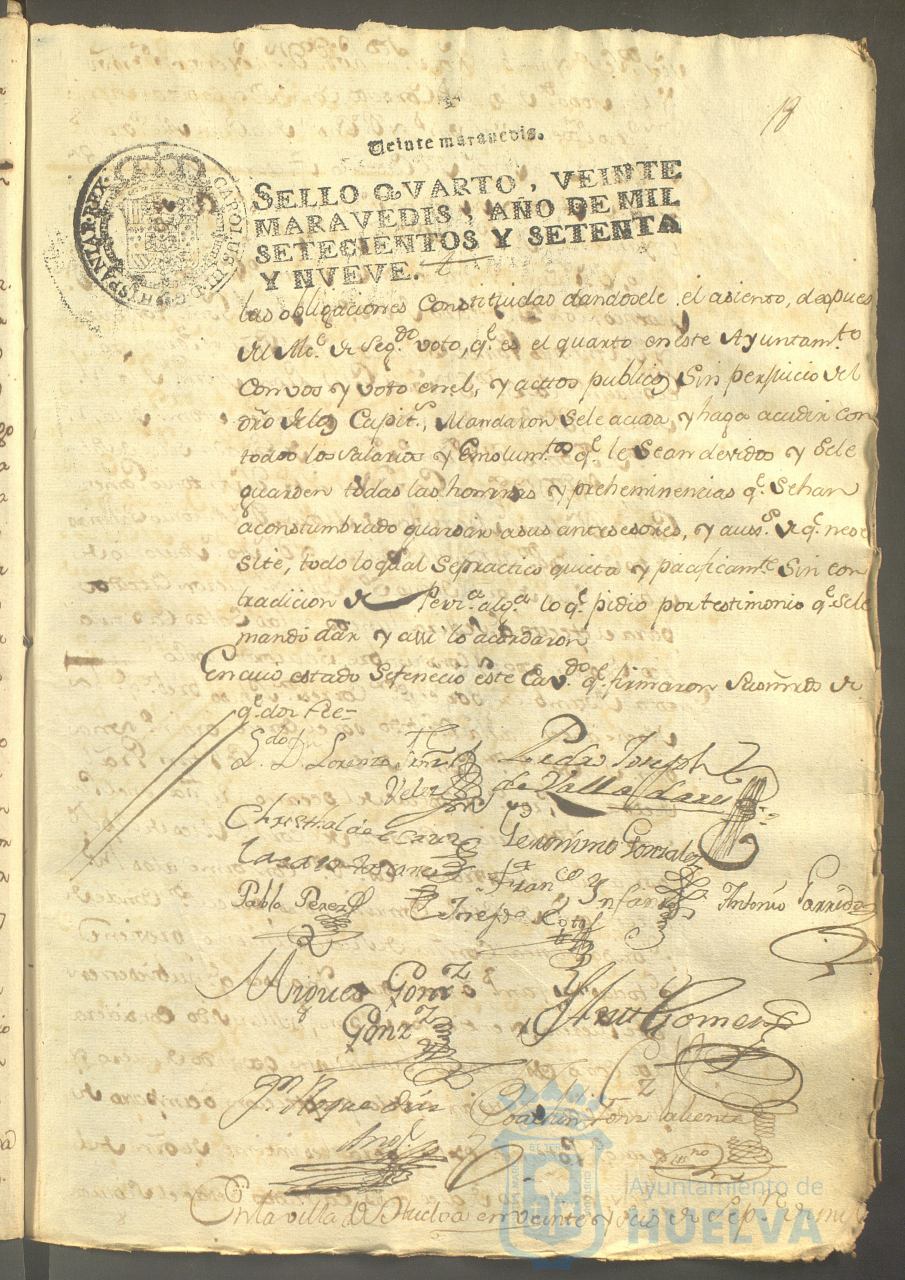 18
Veinte maravedis.
SELLO QVARTO, VEINTE
MARAVEDIS, AÑO DE MIL
SETECIENTOS Y SETENTA
Y NVEVE.
HISPANIAR. REX CAROLUS III D. G.
las obligaciones Constituidas dandosele el asiento, despues
del Alc.e de Seg.do voto, q.e es el quarto en este Ayuntam.to
Con vos y voto en el, y actos publicos Sin perjuicio del
dro de los Capit.s, Mandaron Sele acuda, y haga acudir con
todos los Salarios y Emolum.tos q.e le Sean devidos y Sele
guarden todas las honrras y preheminencias q.e Sehan
acostumbrado guardar a sus antesesores, y de q.e nece
site, todo loqual Sepractico quieta y pacificam.te Sin con
tradicion de Perz.a alg.a lo q.e pidio por testimonio q.e Sele
mandó dar y assi lo acordaron
En cuio estado Sefenecio este Cav.do q.e firmaron Susmrds de
q.e doi Fee=
Lorenzo
Velez
Pedro Joseph
de Valladares
Christtoval de
Geronimo Gonzalez
Fran.co Infante
Antonio Garrido
Pablo Perez
Josefh Coto
Miguel Gonz.z
Gonz.z
Gomez
Jn Roque Diaz
Valiente
En la villa de Huelva en veinte y seis de Sep.re de mil
Ayuntamiento de
HUELVA